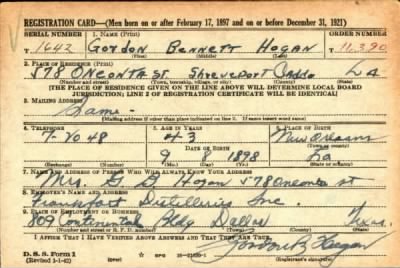 REGISTRATION CARD—(Men born on or after February 17, 1897 and on or before December 31, 1921)
SERIAL NUMBER 1. NAME (Print) ORDER NUMBER
T 1642 Gordon Bennett Hogan T 11,390
(First) (Middle) (Last)
2. PLACE OF RESIDENCE (Print)
578 Oneonta St. Shreveport Caddo LA
(Number and street) (Town, township, village, or city) (County) (State)
[THE PLACE OF RESIDENCE GIVEN ON THE LINE ABOVE WILL DETERMINE LOCAL BOARD
JURISDICTION; LINE 2 OF REGISTRATION CERTIFICATE WILL BE IDENTICAL]
3. MAILING ADDRESS
Same
[Mailing address if other than place indicated on line 2. If same insert word same]
4. TELEPHONE 5. AGE IN YEARS 6. PLACE OF BIRTH
7-7048 43 New Orleans
DATE OF BIRTH (Town or county)
9 8 1898 La
(Exchange) (Number) (Mo.) (Day) (Yr.) (State or country)
7. NAME AND ADDRESS OF PERSON WHO WILL ALWAYS KNOW YOUR ADDRESS
Mrs. G B Hogan 578 Oneonta St
8. EMPLOYER'S NAME AND ADDRESS
Frankfort Distilleries Inc.
9. PLACE OF EMPLOYMENT OR BUSINESS
809 Continental Bldg Dallas Texas
(Number and street or R. F. D. number) (Town) (County) (State)
I AFFIRM THAT I HAVE VERIFIED ABOVE ANSWERS AND THAT THEY ARE TRUE.
D. S. S. Form 1
(Revised 1-1-42) GPO Gordon B Hogan